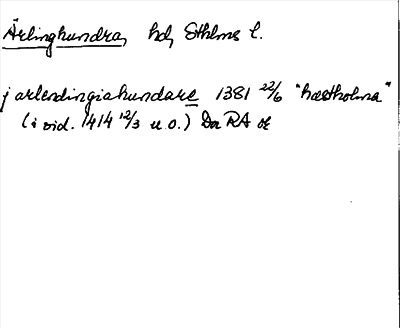 Ärlinghundra, hd, Sthlms l.
j arlendingiahundare 1381 22/6 "hæstholma"
(i vid. 1414 12/3 u.o.) Da RA or